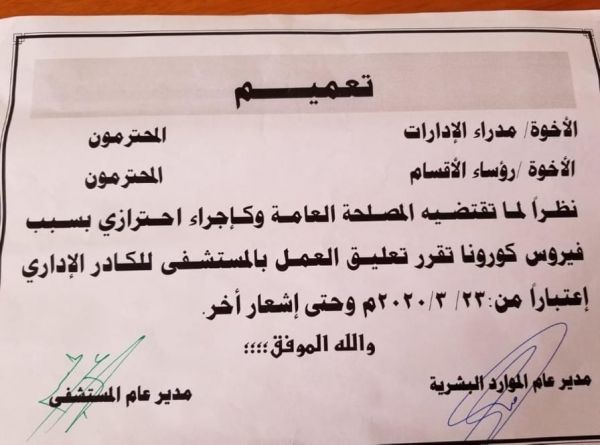 تعميم
الأخوة/ مدراء الإدارات المحترمون
الأخوة /رؤساء الأقسام المحترمون
نظراً لما تقتضيه المصلحة العامة وكإجراء احترازي بسبب
فيروس كورونا تقرر تعليق العمل بالمستشفى للكادر الإداري
إعتباراً من: ٢٣/ ٣/ ٢٠٢٠م وحتى إشعار أخر.
والله الموفق؛؛؛؛
مدير عام الموارد البشرية مدير عام المستشفى